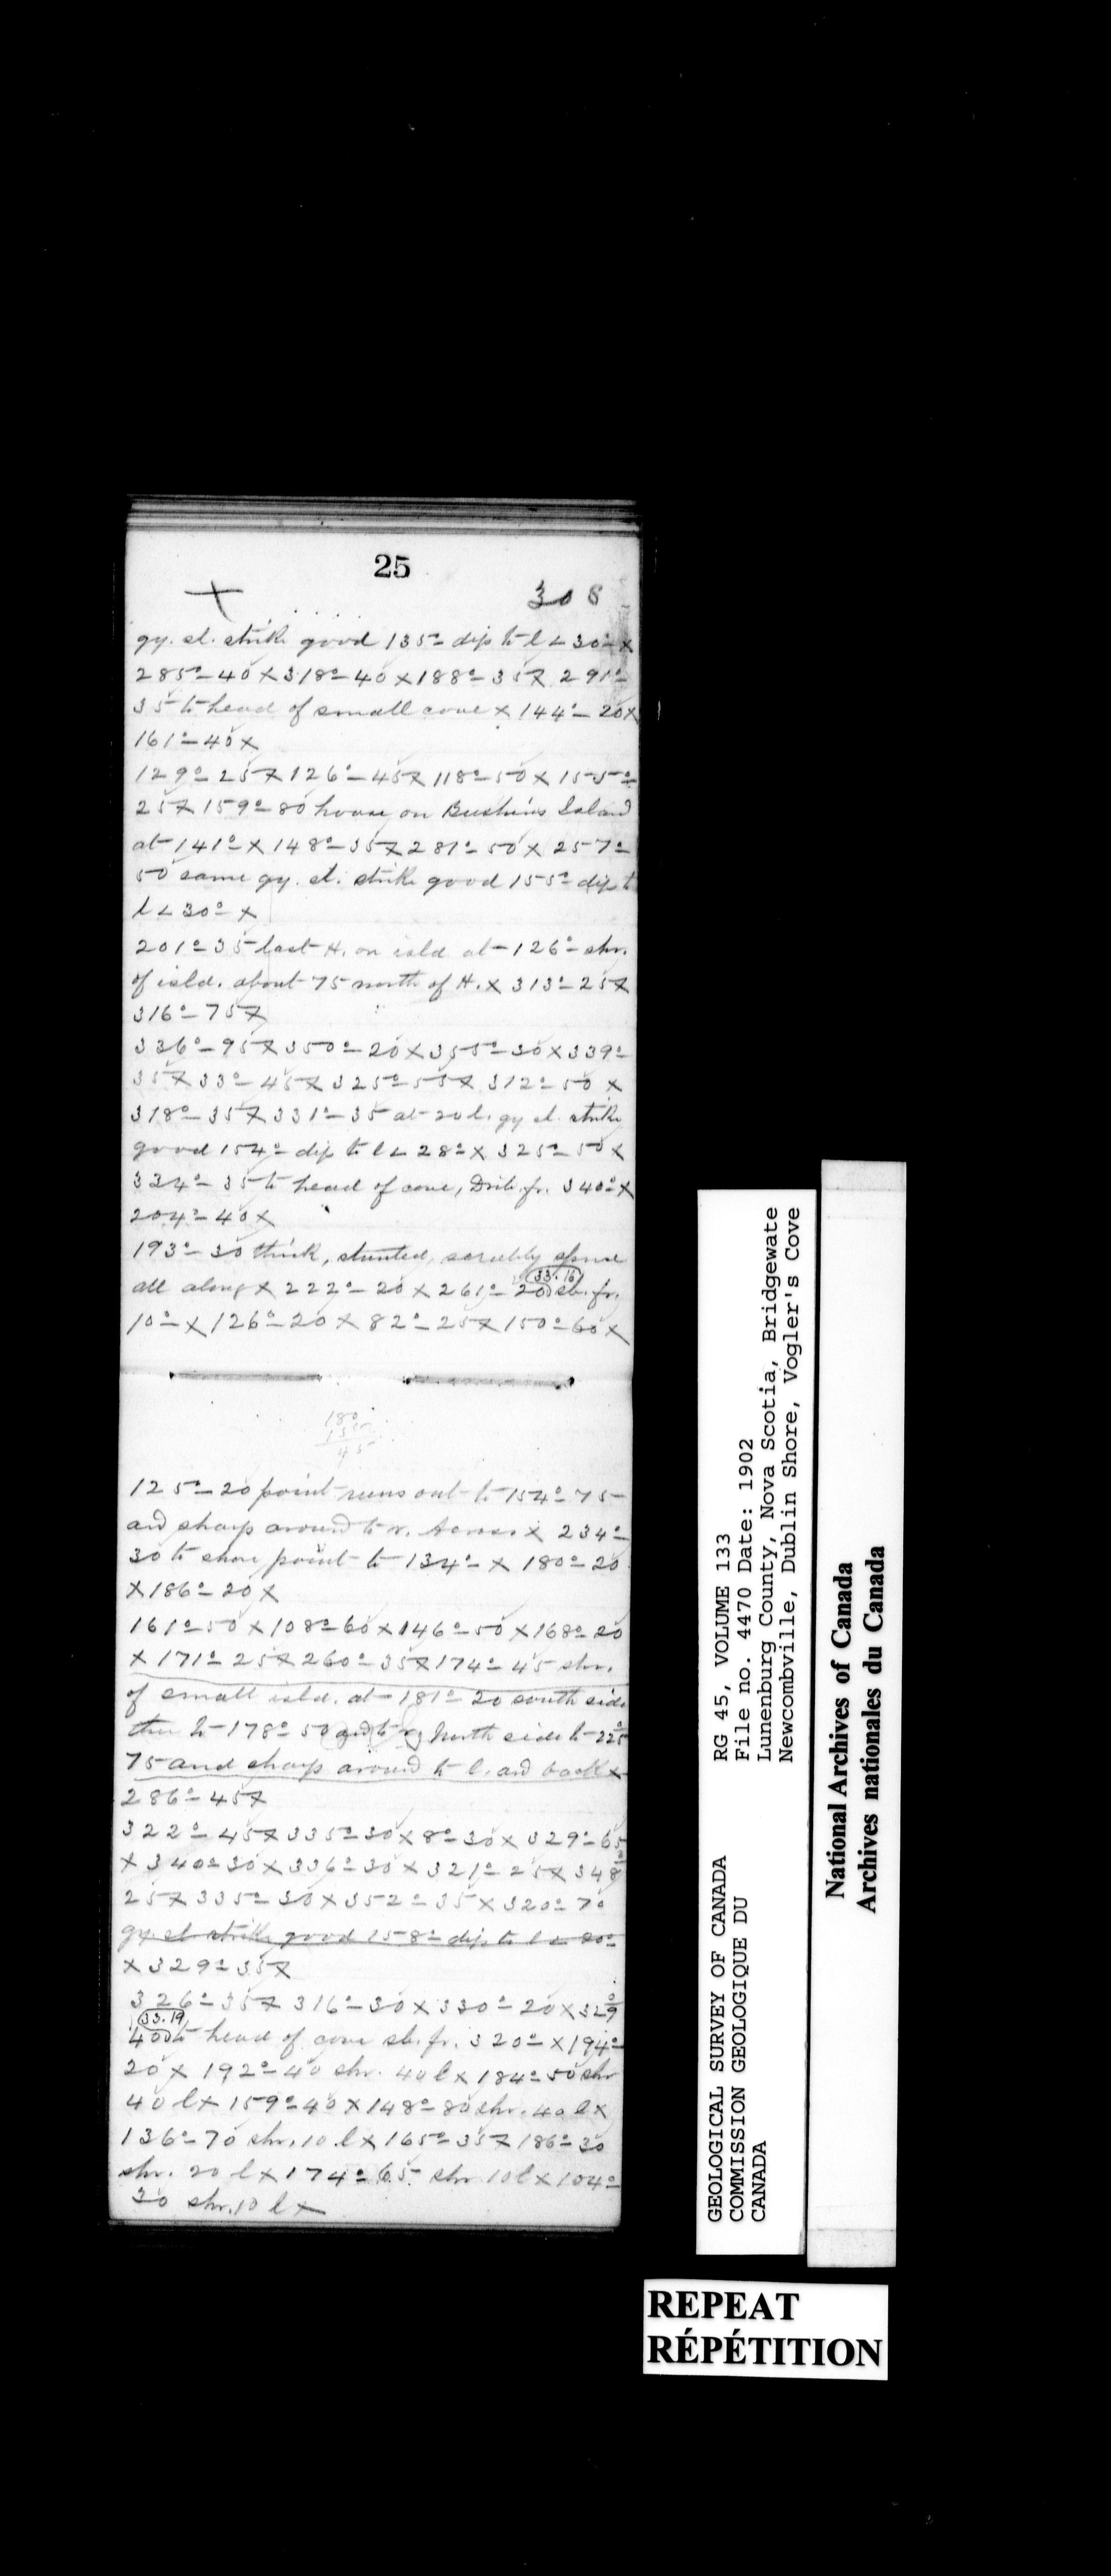 25
308
gy. sl. strike good 135° dip to l ∠ 30° x
285°-40 x 318°-40 x 188°-35 x 291°-
35 to head of small cove x 144°-20 x
161°-40 x
129°-25 x 126°-45 x 118°-50 x 155°-
25 x 159°-80 house on Bushins Island
at 141° x 148°-35 x 281°-50 x 257°-
50 same gy. sl. strike good 155° dip to
l ∠ 30° x
201°-35 last H. on isld at 126° shr.
of isld. about 75 north of H. x 313°-25 x
316°-75 x
336°-95 x 350°-20 x 355°-30 x 339°-
35 x 33°-45 x 325°-55 x 312°-50 x
318°-35 x 331°-35 at 20 l. gy sl. strike
good 154° dip to l ∠ 28° x 325°-50 x
334°-35 to head of cove, Drib. fr. 340° x
204°-40 x
193°-30 thick, stunted, scrubby spruce
all along x 222°-20 x 261°-20 (33.16) sb. fr.
10° x 126°-20 x 82°-25 x 150°-60 x
180
135
45
125°-20 point runs out to 154°-75
and sharp around to r. Across x 234°-
30 to shore point to 134° x 180°-20
x 186°-20 x
161°-50 x 108°-60 x 146°-50 x 168°-20
x 171°-25 x 260°-35 x 174°-45 shr.
of small isld. at 181°-20 south side
then to 178°-50 and to r. North side to 225°
75 and sharp around to l. and back x
286°-45 x
322°-45 x 335°-30 x 8°-30 x 329°-65
x 340°-30 x 336°-30 x 321°-25 x 348°
25 x 335°-30 x 352°-35 x 320°-70
gy sl strike good 158° dip to l ∠ 20°
x 329°-35 x
326°-35 x 316°-30 x 330°-20 x 329°
(33.19)
40 to head of cove sb. fr. 320° x 194°-
20 x 192°-40 shr. 40 l x 184°-50 shr
40 l x 159°-40 x 148°-80 shr. 40 l x
136°-70 shr. 10 l x 165°-35 x 186°-30
shr. 20 l x 174°-65 shr 10 l x 104°-
30 shr. 10 l x
GEOLOGICAL SURVEY OF CANADA
COMMISSION GEOLOGIQUE DU
CANADA
RG 45, VOLUME 133
File no. 4470 Date: 1902
Lunenburg County, Nova Scotia, Bridgewate
Newcombville, Dublin Shore, Vogler's Cove
National Archives of Canada
Archives nationales du Canada
REPEAT
RÉPÉTITION